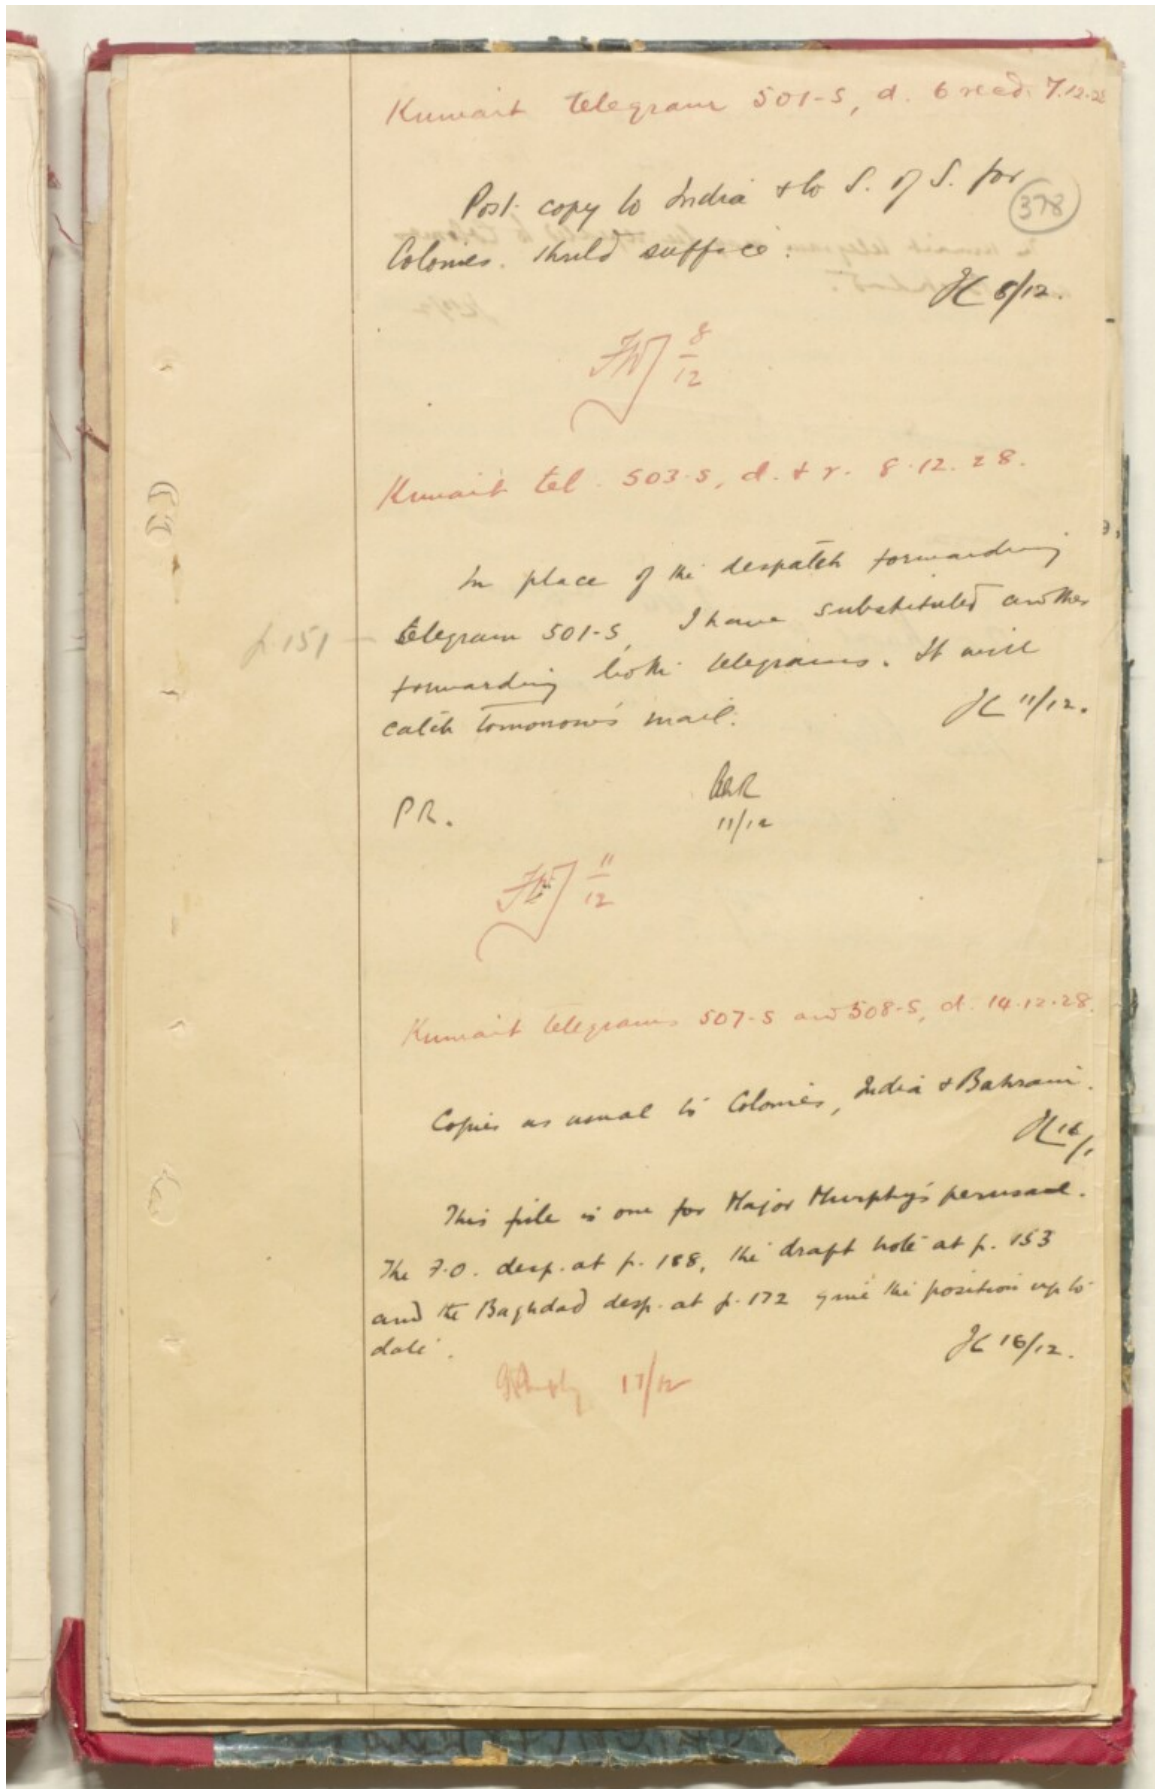 Kuwait telegram 501-S, d. 6 recd. 7.12.28
Post copy to India & to S. of S. for
378
Colonies. Should suffice.
8/12.
8/12
Kuwait tel. 503-S, d. & r. 8.12.28.
In place of the despatch forwarding
p. 151 - telegram 501-S, I have substituted another
forwarding both telegrams. It will
catch tomorrow's mail.
11/12.
P.R.
11/12
11/12
Kuwait telegrams 507-S and 508-S, d. 14.12.28.
Copies as usual to Colonies, India & Bahrain.
This file is one for Major Murphy's perusal.
The F.O. desp. at p. 188, the draft note at p. 153
and the Baghdad desp. at p. 172 give the position up to
date.
16/12.
17/12